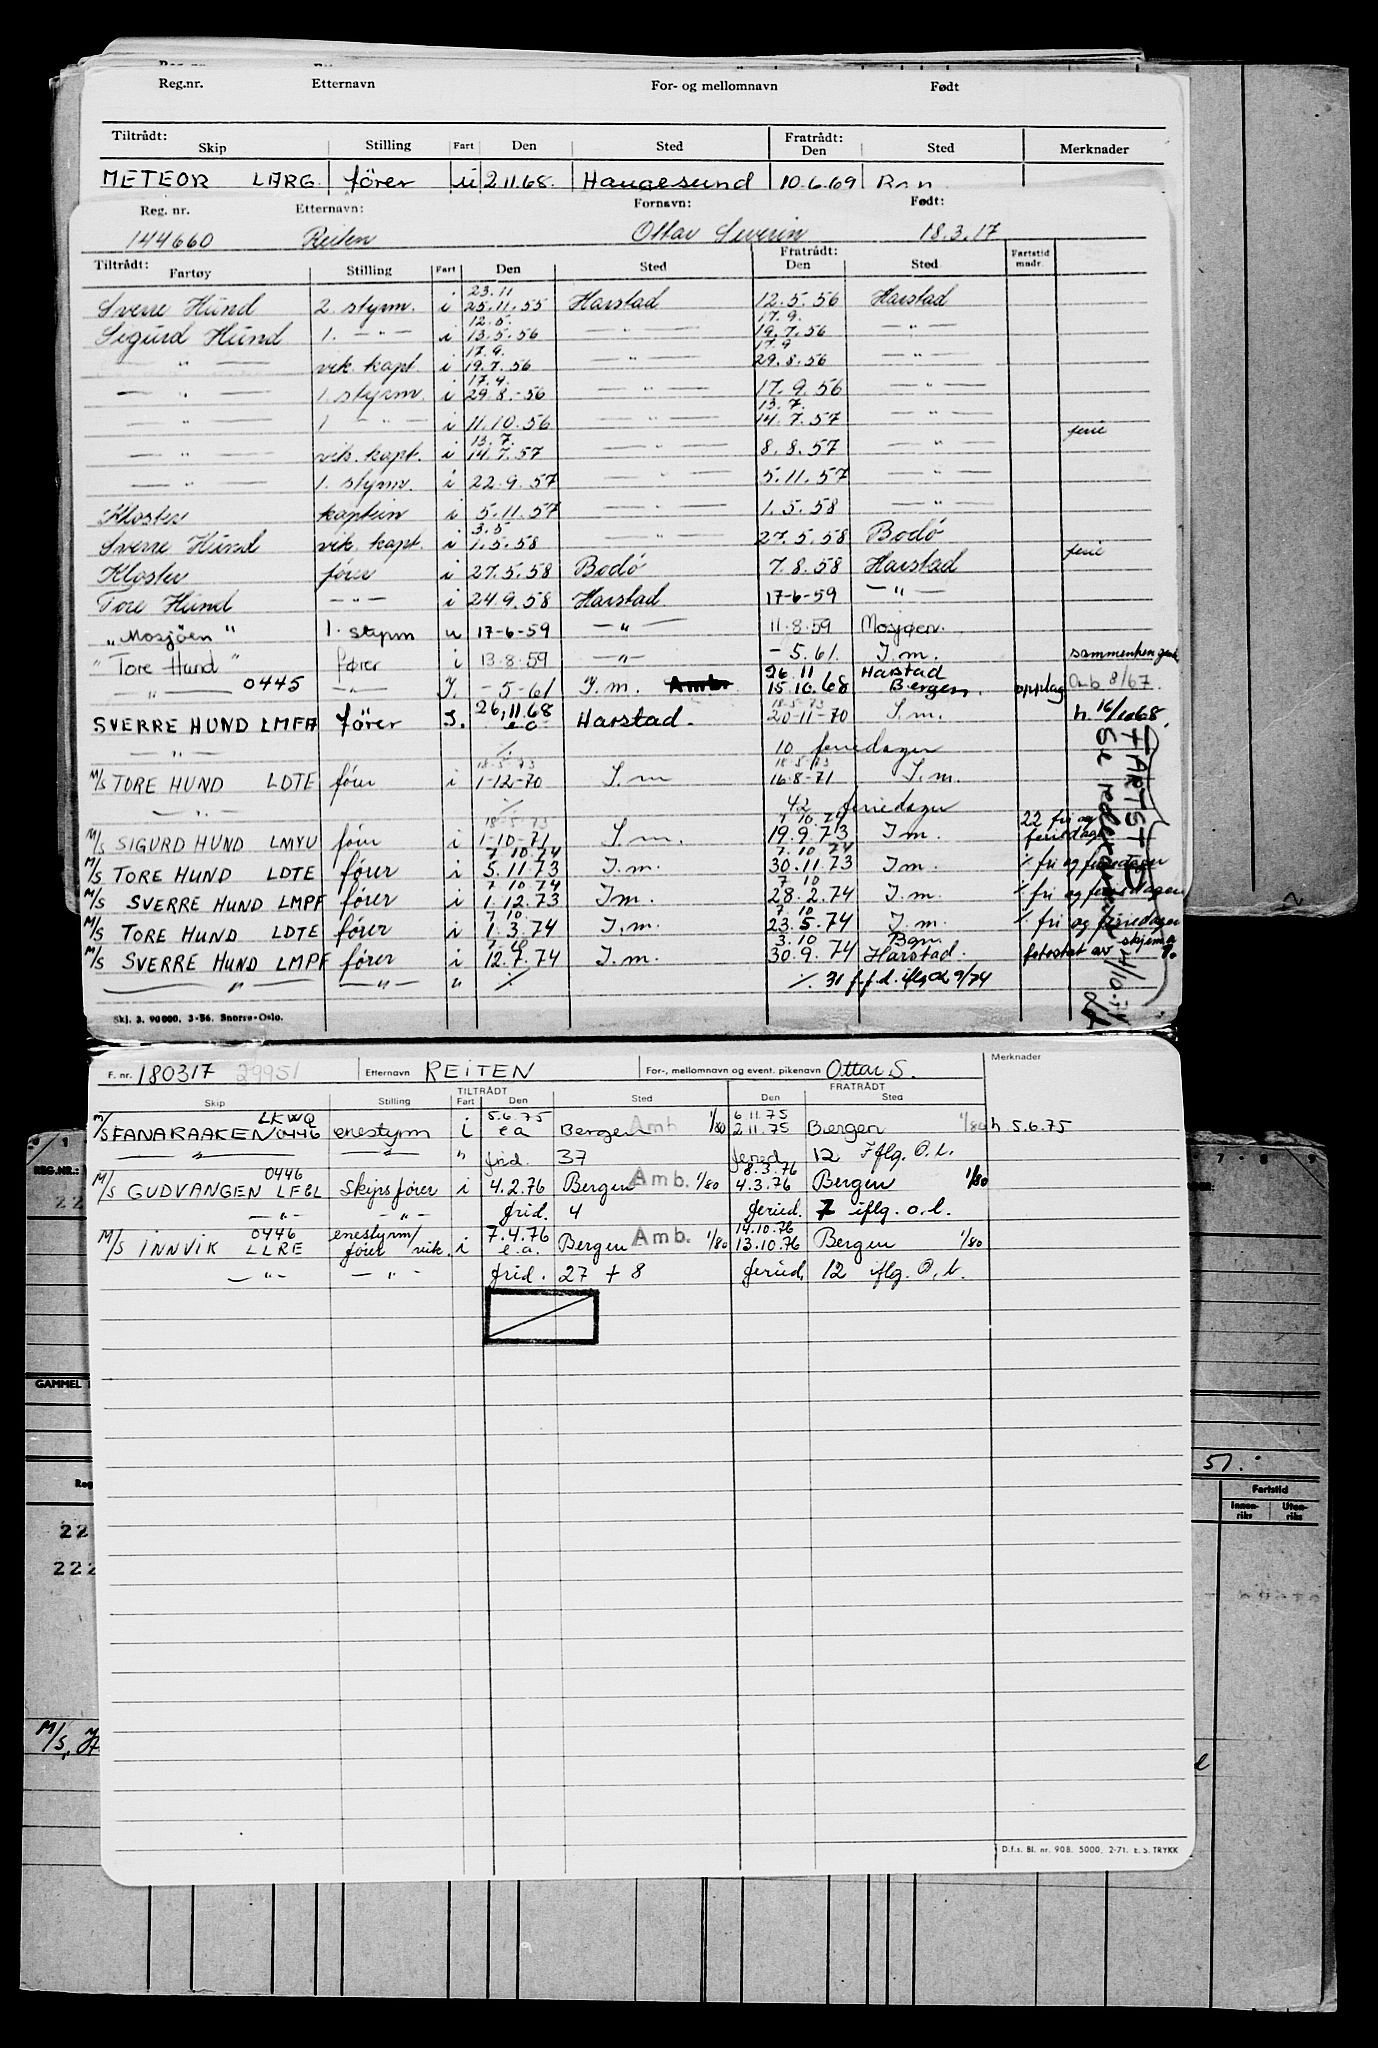 Reg.nr. Etternavn For- og mellomnavn Født
Tiltrådt: Skip Stilling Fart Den Sted Fratrådt: Den Sted Merknader
METEOR LARG fører u 2.11.68. Haugesund 10.6.69
Reg. nr. Etternavn: Fornavn: Født:
144660 Reiten Ottar Severin 18.3.17
Tiltrådt: Fartøy Stilling Fart Den Sted Fratrådt: Den Sted Fartstid mndr.
23.11
Sverre Hund 2. styrm. i 25.11.55 Harstad 12.5.56 Harstad
12.5. 17.9.
Sigurd Hund 1. — " — i 13.5.56 — " — 19.7.56 — " —
17.9. 17.9
— " — vik. kapt. i 19.7.56 — " — 29.8.56
17.9.
— " — 1. styrm. i 29.8.-56 17.9.56 — " —
13.7.
— " — 1 — " — i 11.10.56 — " — 14.7.57 — " —
13.7. ferie
— " — vik. kapt. i 14.7.57 — " — 8.8.57 — " —
— " — 1. styrm. i 22.9.57 — " — 5.11.57 — " —
Kloster kaptein i 5.11.57 1.5.58 — " —
3.5
Sverre Hund vik. kapt. i 1.5.58 — " — 27.5.58 Bodø
Kloster fører i 27.5.58 Bodö 7.8.58 Harstad ferie
Tore Hund — " — i 24.9.58 Harstad 17-6-59 — " —
„Mosjöen" 1. styrm u 17-6-59 — " — 11.8.59 Mosjøen.
"Tore Hund" fører i 13.8.59 — " — - 5.61. I.m.
26.11 Harstad
— " — 0445 — " — I. - 5-61 I.m. 15.10.68 Bergen. opplag Omb 8/67.
SVERRE HUND LMPF fører I. 26.11.68 e.a Harstad. 20-11-70 I.m. h. 16/10 68.
— " — 10 feriedager
18.5.73 18.5.73
M/S TORE HUND LDTE fører i 1-12-70 I.m 16-8-71 I.m.
— " — ./. 42 feriedager
18.5.73 7.10.74 22 fri og
M/S SIGURD HUND LMYU fører i 1-10-71 I.m 19.9.73 I.m. feriedager
7.10.74 7.10.74
M/S TORE HUND LDTE fører i 5.11.73 I.m. 30.11.73 I.m. ./. fri og feriedager
7.10.74 7.10
M/S SVERRE HUND LMPF fører i 1.12.73 I.m. 28.2.74 I.m. ./. fri og feriedager
7.10. 7.10
M/S TORE HUND LDTE fører i 1.3.74 I.m. 23.5.74 I.m. ./. fri og feriedager
7.10 3.10 Bgn.
M/S SVERRE HUND LMPF fører i 12.7.74 I.m. 30.9.74 Harstad. fotostat av skjema
— " — — " — " ./. ./. 31 f.f.d. iflg
FARTSTID
Skj. 3. 90000. 3-56. Snorre-Oslo.
F. nr. 180317 29951 Etternavn REITEN For-, mellomnavn og event. pikenavn Ottar S. Merknader
TILTRÅDT FRATRÅDT
Skip Stilling Fart Den Sted Den Sted
LKWQ 5.6.75 6.11.75
M/S FANARAAKEN/0446 enestyrm i e a Bergen Amb 1/80 2.11.75 Bergen 1/80 h 5.6.75
— " — — " — " frid. 37 feried 12 Iflg. O.b.
0446 8.3.76
M/S GUDVANGEN LFGL Skipsfører i 4.2.76 Bergen Amb. 1/80 4.3.76 Bergen 1/80
— " — — " — frid. 4 feried. 7 iflg. o.b.
0446 enestyrm/ 7.4.76 14.10.76
M/S INNVIK LLRE fører vik. i e.a. Bergen Amb. 1/80 13.10.76 Bergen 1/80
— " — — " — frid. 27 + 8 feried. 12 iflg. O.b.
D.f.s. Bl. nr. 908. 5000. 2-71. E. S. TRYKK
REG.NR.:
GAMMEL
Reg
22
222
M/S,
51.
Fartstid
Innenriks Utenriks
7 8 9